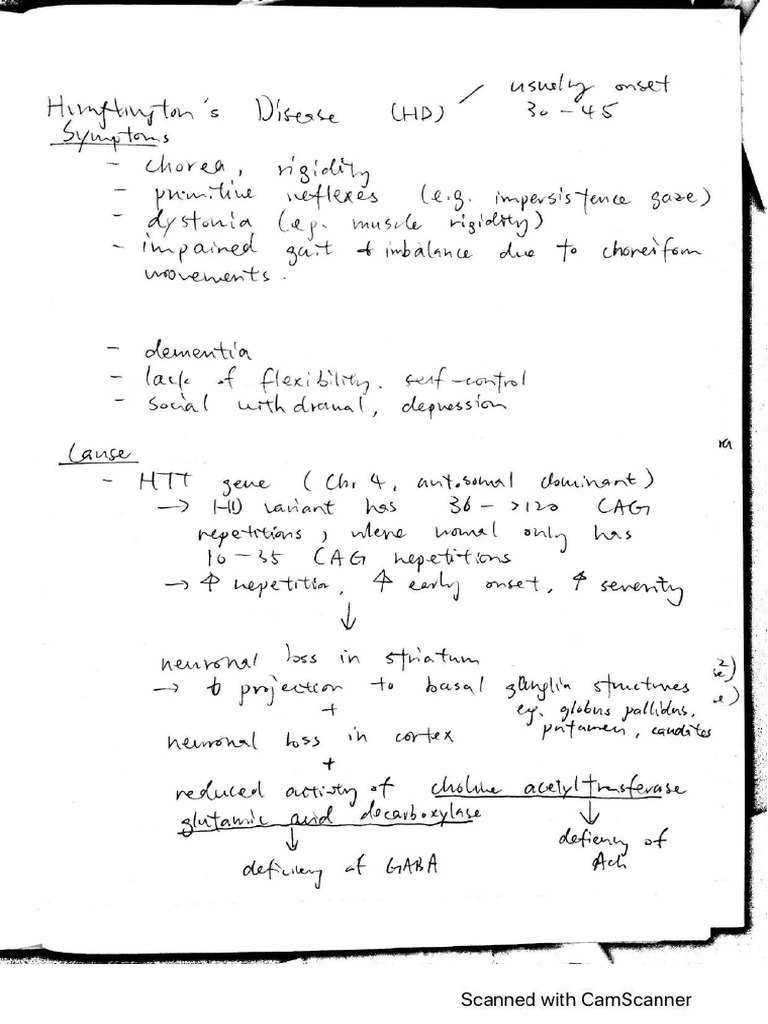 Hungtington's Disease (HD) / usually onset
30 - 45
Symptoms
- chorea, rigidity
- primitive reflexes (e.g. impersistence gaze)
- dystonia (e.g. muscle rigidity)
- impaired gait + imbalance due to choreiform
movements.
- dementia
- lack of flexibility. self-control
- social withdrawal, depression
Cause
- HTT gene (Chr 4, autosomal dominant)
→ HD variant has 36 - >120 CAG
repetitions, where normal only has
10 - 35 CAG repetitions
→ ↑ repetition, ↑ early onset, ↑ severity
↓
neuronal loss in striatum
→ ↓ projection to basal ganglia structures
+ eg. globus pallidus,
putamen, caudates
neuronal loss in cortex
+
reduced activity of choline acetyltransferase
glutamic acid decarboxylase
↓ ↓
deficiency of GABA
deficiency of
Ach
Scanned with CamScanner